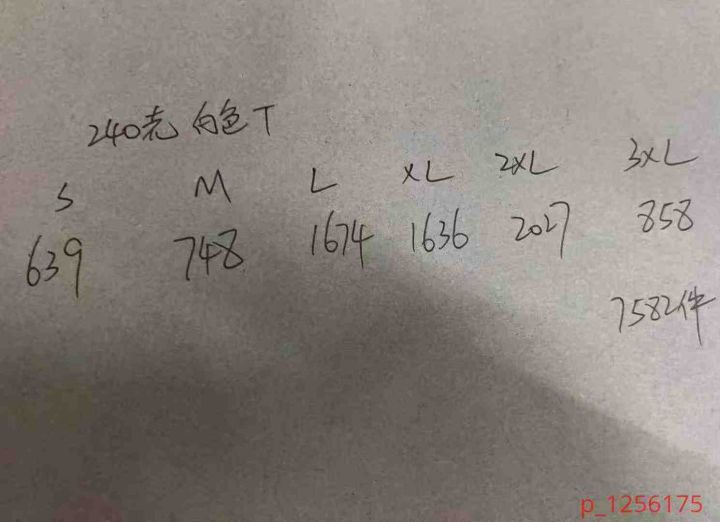 240克 白色T
S M L XL 2XL 3XL
639 748 1674 1636 2027 858
7582件
p_1256175